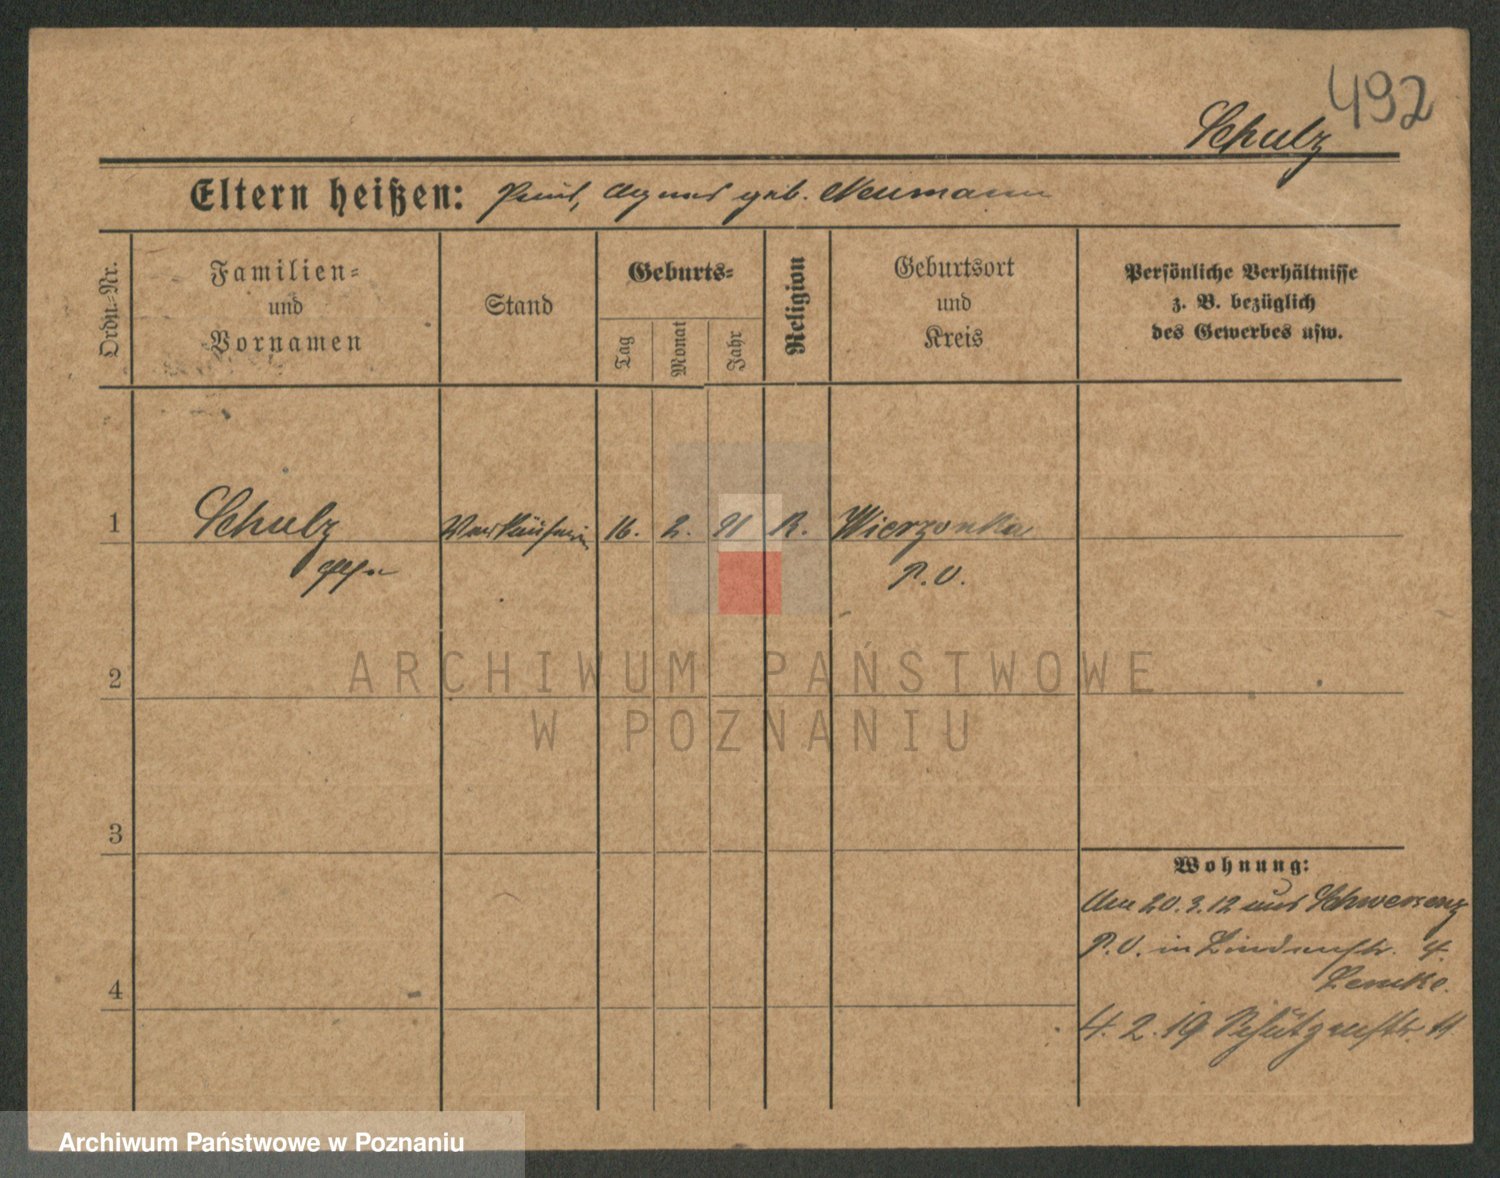 492
Schulz
Eltern heißen: Paul, Agnes geb. Neumann
Ordn.-Nr.
Familien-
und
Vornamen
Stand
Geburts-
Tag
Monat
Jahr
Religion
Geburtsort
und
Kreis
Persönliche Verhältnisse
z. B. bezüglich
des Gewerbes usw.
1 Schulz Verkäuferin 16. 2. 91 K. Wierzonka
P. O.
2
ARCHIWUM PAŃSTWOWE
W POZNANIU
3
Wohnung:
Am 20.3.12 aus Schwersenz
P. O. in Lindenstr. 4.
Lemke.
4
4. 2. 19 Schützenstr. 11
Archiwum Państwowe w Poznaniu